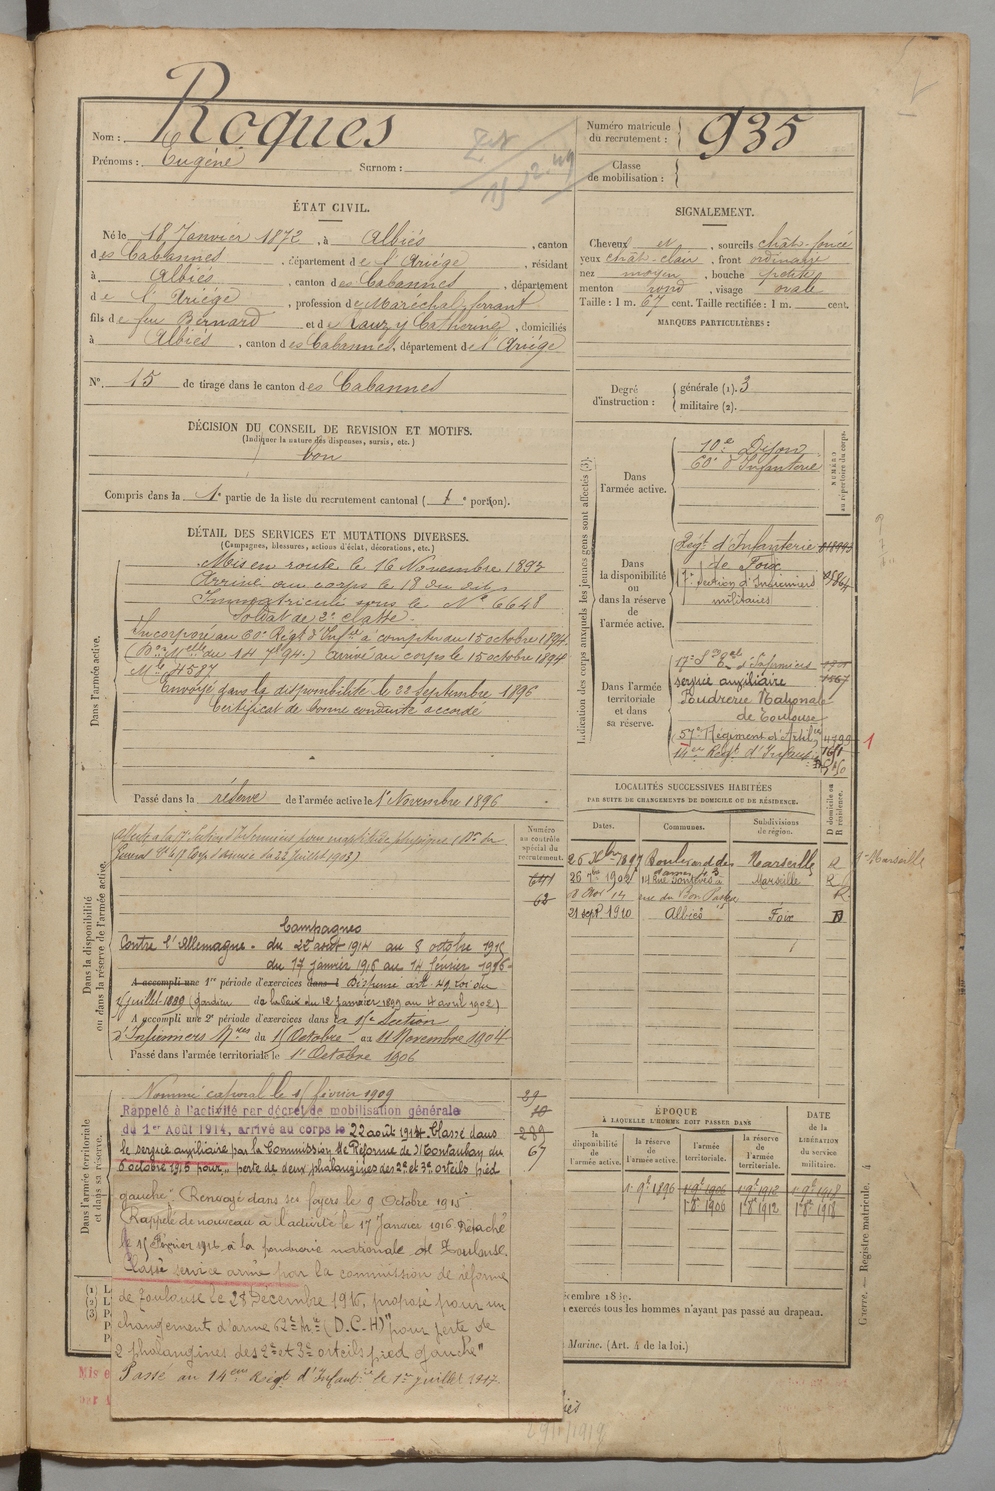 Nom : Roques
Prénoms : Eugène
Surnom :
Numéro matricule
du recrutement : 935
Classe
de mobilisation :
ÉTAT CIVIL.
Né le 18 Janvier 1872, à Albiès, canton
des Cabannes, département de l'Ariège, résidant
à Albiès, canton des Cabannes, département
de l'Ariège, profession de Maréchal ferrant
fils de feu Bernard et de Rauzy Catherine, domiciliés
à Albiès, canton des Cabannes, département de l'Ariège
N°. 15 de tirage dans le canton des Cabannes
SIGNALEMENT.
Cheveux et, sourcils chât-foncé
yeux chât-clair, front ordinaire
nez moyen, bouche petite
menton rond, visage ovale
Taille : 1 m. 67 cent. Taille rectifiée : 1 m. cent.
MARQUES PARTICULIÈRES :
Degré
d'instruction :
générale (1). 3
militaire (2).
DÉCISION DU CONSEIL DE REVISION ET MOTIFS.
(Indiquer la nature des dispenses, sursis, etc.)
bon
Compris dans la 1e partie de la liste du recrutement cantonal ( 1 e portion).
DÉTAIL DES SERVICES ET MUTATIONS DIVERSES.
(Campagnes, blessures, actions d'éclat, décorations, etc.)
Dans l'armée active.
Mis en route le 16 Novembre 1893
Arrivé au corps le 18 du dit
Immatriculé sous le N° 6648
Soldat de 2e classe
Incorporé au 60e Régt d'Infie à compter du 15 octobre 1894
arrivé au corps le 15 octobre 1894
Mle 4587
Envoyé dans la disponibilité le 22 Septembre 1896
Certificat de bonne conduite accordé
Passé dans la réserve de l'armée active le 1er Novembre 1896
Indication des corps auxquels les jeunes gens sont affectés (3).
NUMÉRO
au répertoire du corps.
Dans
l'armée active.
60e d'Infanterie
Dans
la disponibilité
ou
dans la réserve
de
l'armée active.
Régt d'Infanterie
de Foix
7e Section d'Infirmiers
militaires
Dans l'armée
territoriale
et dans
sa réserve.
service auxiliaire
Poudrerie Nationale
de Toulouse
57e Régiment d'Artie
14e Régt d'Infant
1
LOCALITÉS SUCCESSIVES HABITÉES
PAR SUITE DE CHANGEMENTS DE DOMICILE OU DE RÉSIDENCE.
D domicile ou
R résidence.
Dates.
Communes.
Subdivisions
de région.
26 Xbre 1897 Boulevard des Marseille R
26 7bre 1902 Marseille R
rue du Bon Pasteur R
21 sept 1910 Albiès Foix D
Numéro
au contrôle
spécial du
recrutement.
Dans la disponibilité
ou dans la réserve de l'armée active.
Campagnes
Contre l'Allemagne - du 22 août 1914 au 8 octobre 1915
du 17 janvier 1916 au 14 février 1916
A accompli une 1re période d'exercices dans l Dispense art. 49 loi du
15 juillet 1889 (Gardien de la Paix du 12 janvier 1899 au 4 avril 1902)
A accompli une 2e période d'exercices dans la 15e Section
d'Infirmiers Mres du 15 Octobre au 11 Novembre 1904
Passé dans l'armée territoriale le 1er Octobre 1906
Dans l'armée territoriale
et dans sa réserve.
Nommé caporal le 15 février 1909
Rappelé à l'activité par décret de mobilisation générale
du 1er Août 1914, arrivé au corps le 22 août 1914. Classé dans
le service auxiliaire par la Commission de Réforme de Montauban du
6 octobre 1915 pour "perte de deux phalangines des 2e et 3e orteils pied
gauche". Renvoyé dans ses foyers le 9 Octobre 1915
Rappelé de nouveau à l'activité le 17 Janvier 1916. Détaché
le 15 Février 1916 à la poudrerie nationale de Toulouse.
Classé service armé par la commission de réforme
de Toulouse le 28 Décembre 1916, proposé pour un
changement d'arme (D.C.H) "pour perte de
2 phalangines des 2e et 3e orteils pied gauche"
Passé au 14e Régt d'Infantie le 1er juillet 1917.
ÉPOQUE
À LAQUELLE L'HOMME DOIT PASSER DANS
DATE
de la
LIBÉRATION
du service
militaire.
la
disponibilité
de
l'armée active.
la réserve
de
l'armée active.
l'armée
territoriale.
la réserve
de l'armée
territoriale.
1 9e 1896 1 9e 1906 1 9e 1912 1 9e 1918
1 8e 1906 1 8e 1912 1 8e 1918
exercés tous les hommes n'ayant pas passé au drapeau.
Marine. (Art. 4 de la loi.)
Guerre. — Registre matricule. 4